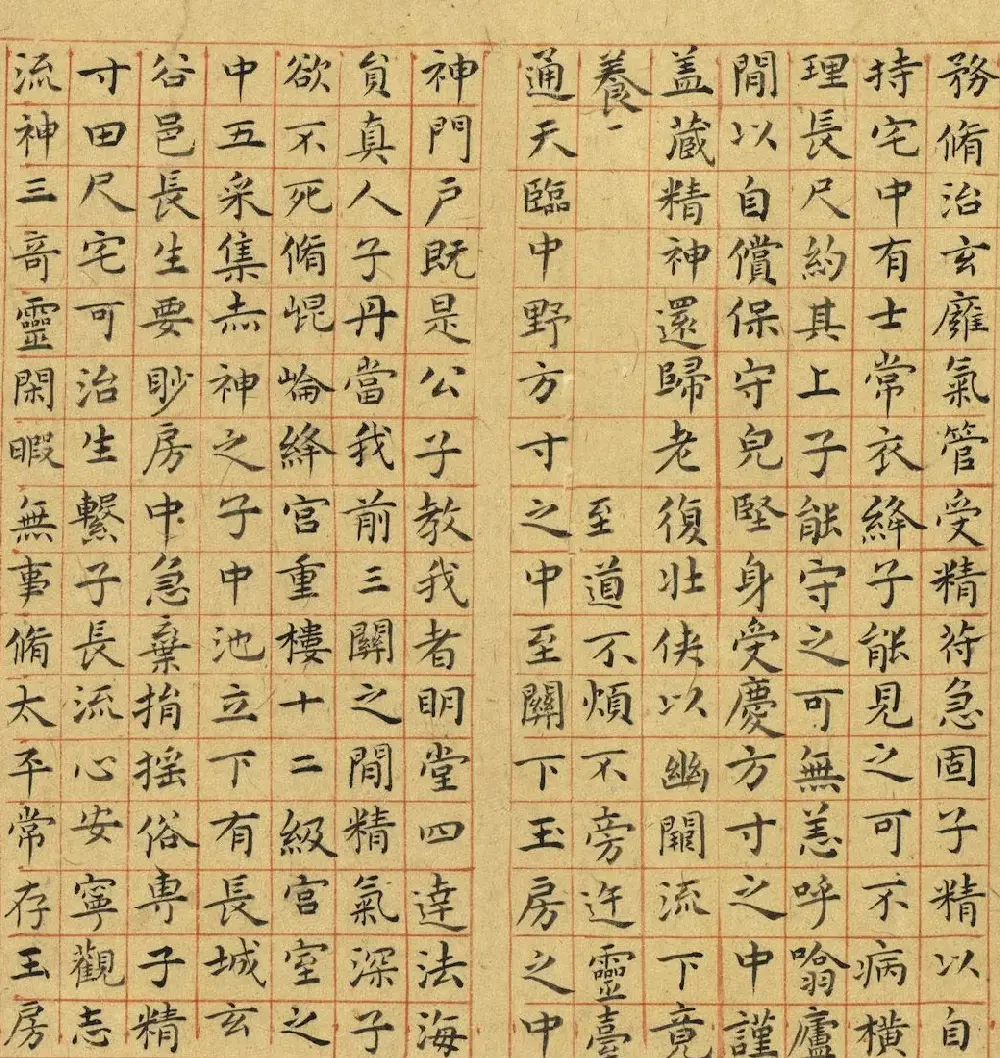 務脩治玄廱氣管受精苻急固子精以自
持宅中有士常衣絳子能見之可不病橫
理長尺約其上子能守之可無恙呼噏廬
閒以自償保守皃堅身受慶方寸之中謹
盖蔵精神還歸老復壯俠以幽闕流下竟
養一至道不煩不旁迕靈臺
通天臨中野方寸之中至關下玉房之中
神門戶既是公子教我者明堂四達法海
貟真人子丹當我前三關之閒精氣深子
欲不死脩崐崘絳宮重樓十二級宮室之
中五采集赤神之子中池立下有長城玄
谷邑長生要眇房中急棄捐摇俗専子精
寸田尺宅可治生繫子長流心安寧觀志
流神三竒靈閑暇無事脩太平常存玉房